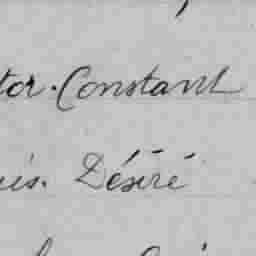 tor. Constant
uis. Désiré